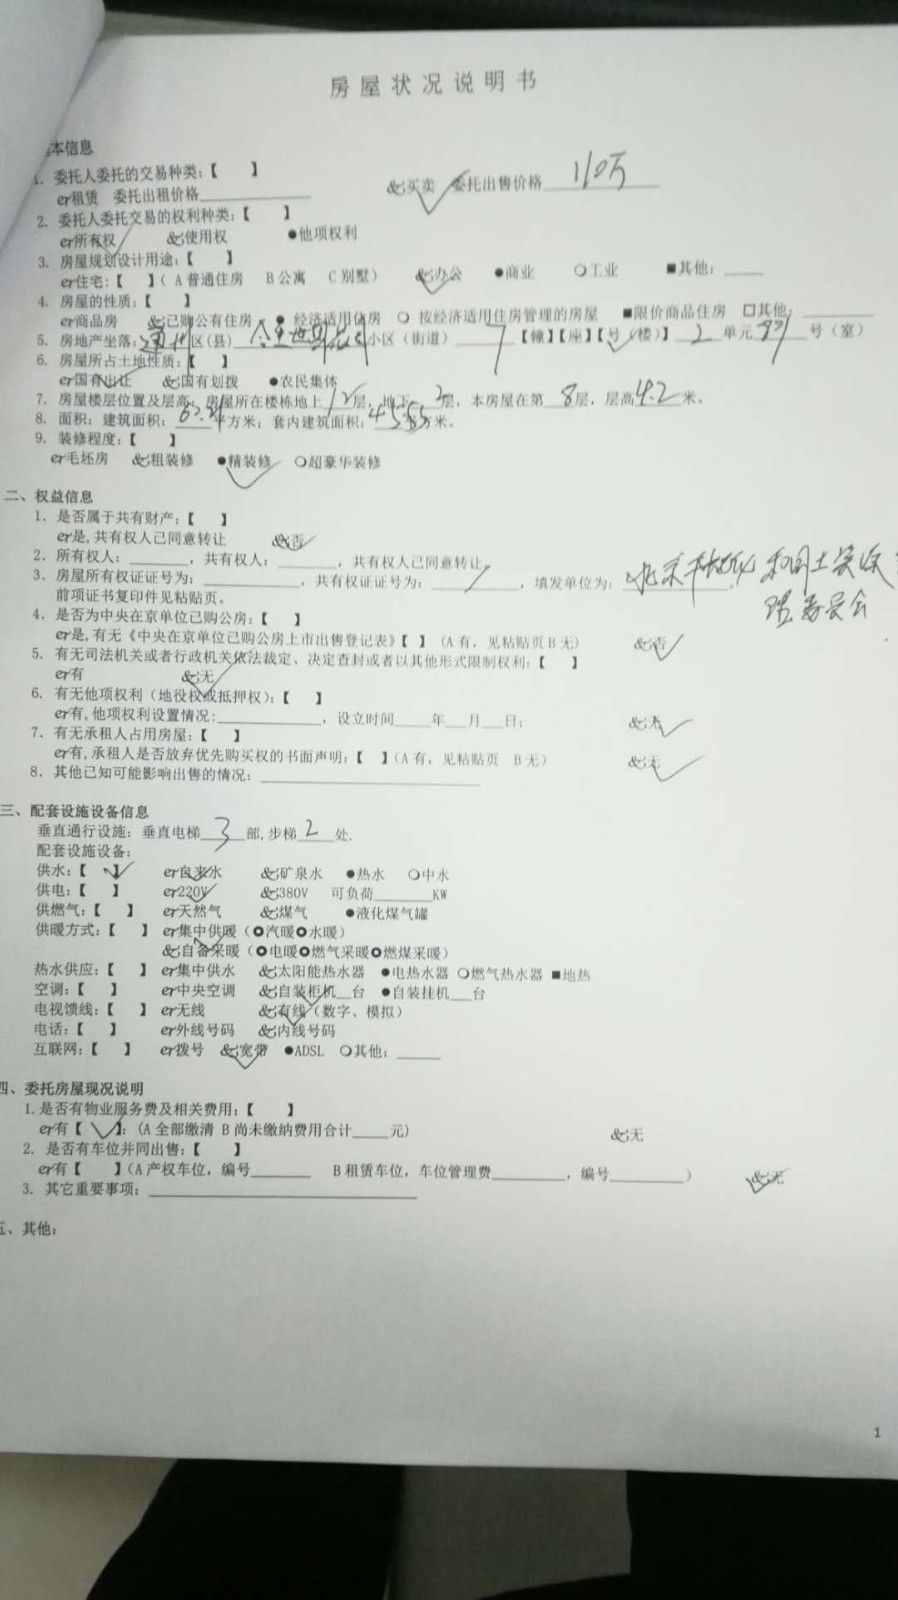 房屋状况说明书
本信息
1. 委托人委托的交易种类:【 】
er租赁 委托出租价格 &买卖 委托出售价格 110万
2. 委托人委托交易的权利种类:【 】
er所有权 &使用权 ●他项权利
3. 房屋规划设计用途:【 】
er住宅:【 】( A普通住房 B公寓 C别墅) &办公 ●商业 ○工业 ■其他:
4. 房屋的性质:【 】
er商品房 &已购公有住房 ● 经济适用住房 ○ 按经济适用住房管理的房屋 ■限价商品住房 口其他
5. 房地产坐落: 通州 区(县) 小区(街道) 7 【幢】【座】【号(楼)】 2 单元 号(室)
6. 房屋所占土地性质:【 】
er国有出让 &国有划拨 ●农民集体
7. 房屋楼层位置及层高: 房屋所在楼栋地上 12 层, 地下 层, 本房屋在第 8 层, 层高 4.2 米。
8. 面积: 建筑面积: 平方米; 套内建筑面积: 45.55 方米。
9. 装修程度:【 】
er毛坯房 &粗装修 ●精装修 ○超豪华装修
二、权益信息
1. 是否属于共有财产:【 】
er是,共有权人已同意转让 &否
2. 所有权人: , 共有权人: , 共有权人已同意转让
3. 房屋所有权证证号为: , 共有权证证号为: , 填发单位为: 北京 和国土资源
前项证书复印件见粘贴页。 委员会
4. 是否为中央在京单位已购公房:【 】
er是,有无《中央在京单位已购公房上市出售登记表》【 】 (A有, 见粘贴页B无) &否
5. 有无司法机关或者行政机关依法裁定、决定查封或者以其他形式限制权利:【 】
er有 &无
6. 有无他项权利(地役权或抵押权):【 】
er有,他项权利设置情况: , 设立时间 年 月 日; &无
7. 有无承租人占用房屋:【 】
er有,承租人是否放弃优先购买权的书面声明:【 】(A有, 见粘贴页 B无) &无
8. 其他已知可能影响出售的情况:
三、配套设施设备信息
垂直通行设施: 垂直电梯 3 部,步梯 2 处.
配套设施设备:
供水:【 】 er自来水 &矿泉水 ●热水 ○中水
供电:【 】 er220V &380V 可负荷 KW
供燃气:【 】 er天然气 &煤气 ●液化煤气罐
供暖方式:【 】 er集中供暖(○汽暖○水暖)
&自备采暖(○电暖○燃气采暖○燃煤采暖)
热水供应:【 】 er集中供水 &太阳能热水器 ●电热水器 ○燃气热水器 ■地热
空调:【 】 er中央空调 &自装柜机 台 ●自装挂机 台
电视馈线:【 】 er无线 &有线(数字、模拟)
电话:【 】 er外线号码 &内线号码
互联网:【 】 er拨号 &宽带 ●ADSL ○其他:
四、委托房屋现况说明
1.是否有物业服务费及相关费用:【 】
er有【 】: (A全部缴清 B尚未缴纳费用合计 元) &无
2. 是否有车位并同出售:【 】
er有【 】(A产权车位, 编号 B租赁车位, 车位管理费 , 编号 ) &无
3. 其它重要事项:
五、其他:
1